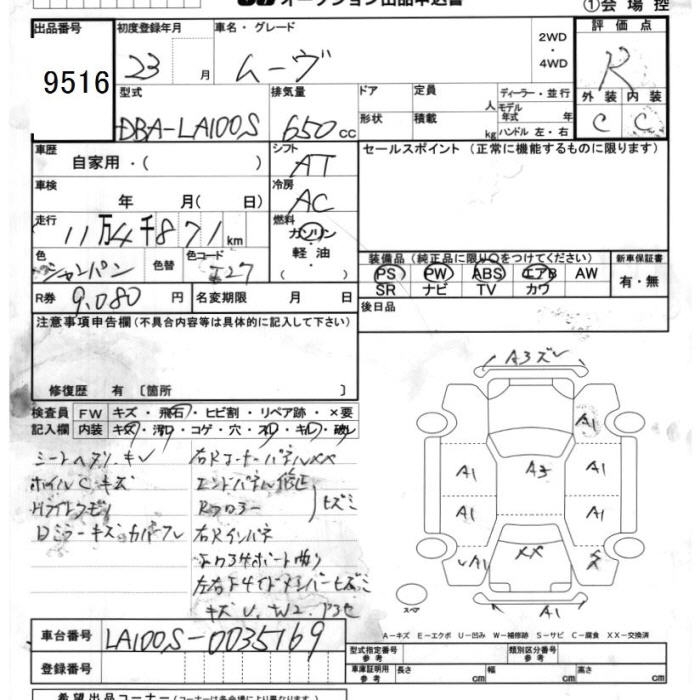 オークション出品申込書 ①会場控
出品番号 初度登録年月 車名・グレード 2WD ・ 4WD 評価点
9516 23 月 ムーヴ R
型式 排気量 ドア 定員 人 ディーラー・並行 外装 内装
DBA-LA100S 650 cc 形状 積載 kg モデル年式 年 ハンドル 左・右 C C
車歴 自家用・( ) シフト AT セールスポイント (正常に機能するものに限ります)
車検 年 月( 日) 冷房 AC
走行 11万4千871km 燃料 ガソリン・軽油・( )
色 シャンパン 色替 色コード T27
装備品 (純正品に限り○をつけてください) 新車保証書
PS PW ABS エアB AW 有・無
SR ナビ TV カワ
R券 9,080 円 名変期限 月 日 後日品
注意事項申告欄 (不具合内容等は具体的に記入して下さい)
修復歴 有 [箇所 ]
検査員記入欄 FW キズ・飛石・ヒビ割・リペア跡・×要
内装 キズ・汚れ・コゲ・穴・スレ・キレ・破レ
ホイルC キズ
Dミラーキズ カバーフレ
右Rコーナーパネル××
エンドパネル修正
Rフロアー ヒズミ
右Rインパネ
A3ズレ
A1
A1 A3 A1
A1 A1
A1 ××
A1
スペア
A－キズ E－エクボ U－凹み W－補修跡 S－サビ C－腐食 XX－交換済
車台番号 LA100S-0035169
型式指定番号 参考 類別区分番号 参考
登録番号 車庫証明用 参考 長さ cm 幅 cm 高さ cm
希望出品コーナー (コーナーは各会場により異なります)